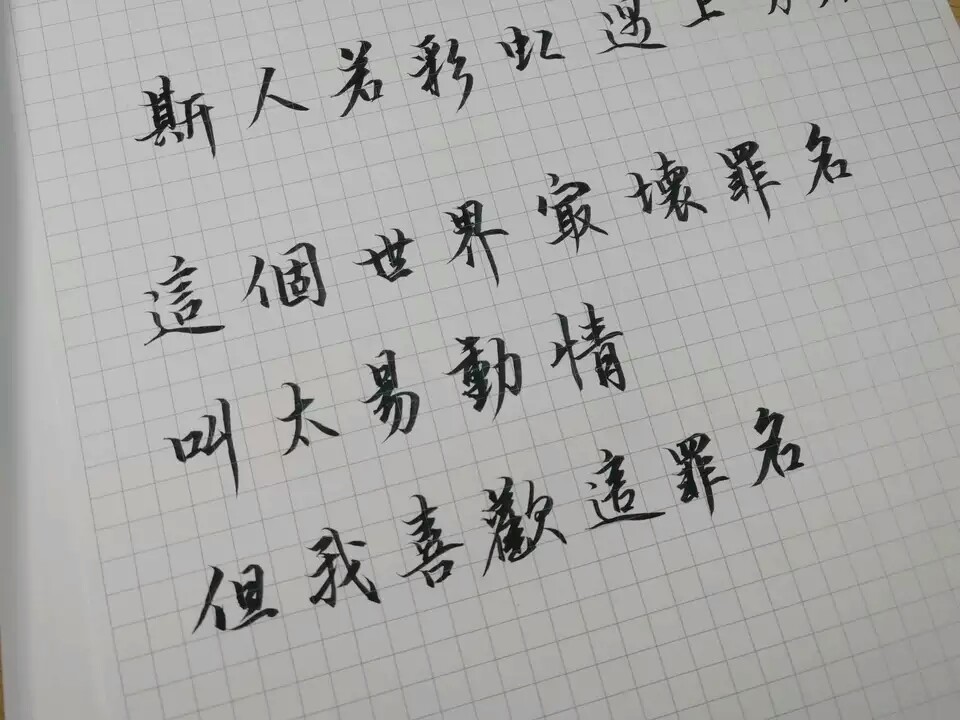 斯人若彩虹遇上方
這個世界最壞罪名
叫太易動情
但我喜歡這罪名